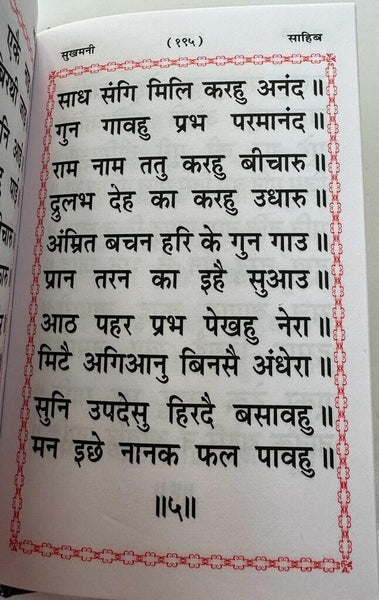 सुखमनी (१९५) साहिब
साध संगि मिलि करहु अनंद॥
गुन गावहु प्रभ परमानंद॥
राम नाम ततु करहु बीचारु॥
द्रुलभ देह का करहु उधारु॥
अंम्रित बचन हरि के गुन गाउ॥
प्रान तरन का इहै सुआउ॥
आठ पहर प्रभ पेखहु नेरा॥
मिटै अगिआनु बिनसै अंधेरा॥
सुनि उपदेसु हिरदै बसावहु॥
मन इछे नानक फल पावहु॥
॥५॥